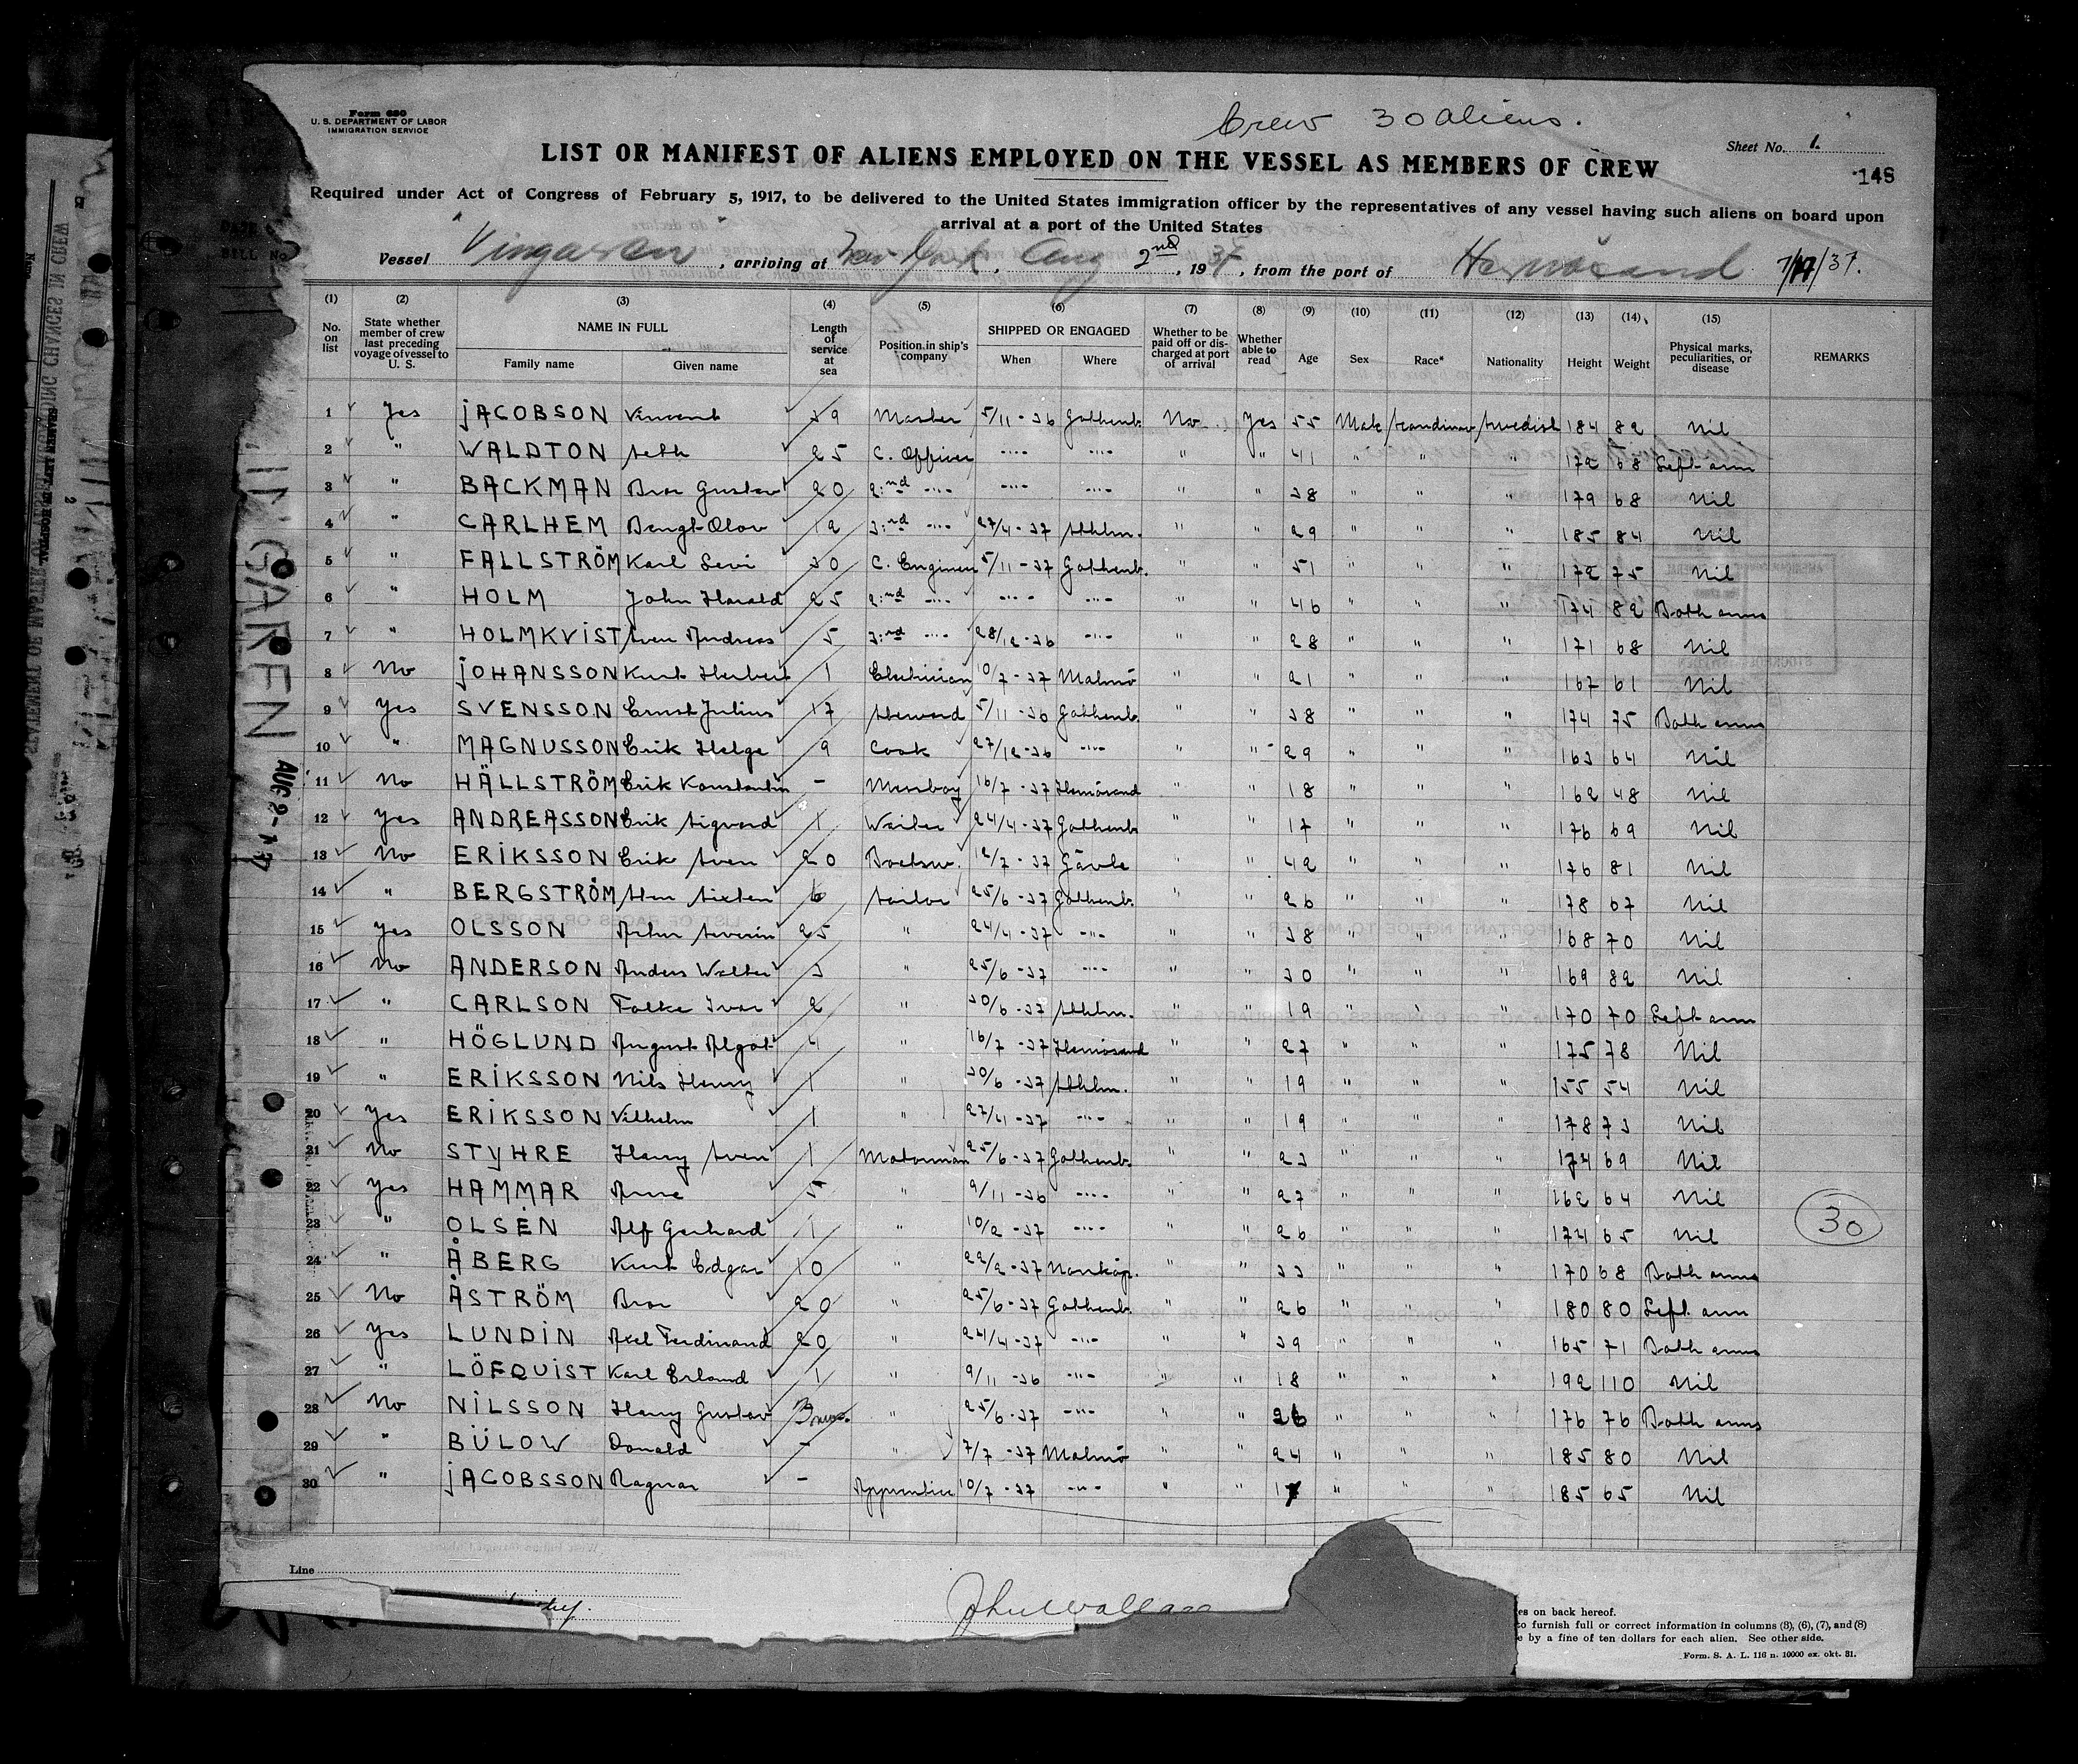 Crew 30 aliens.
Form 680
U. S. DEPARTMENT OF LABOR
IMMIGRATION SERVICE
Sheet No. 1.
LIST OR MANIFEST OF ALIENS EMPLOYED ON THE VESSEL AS MEMBERS OF CREW
148
Required under Act of Congress of February 5, 1917, to be delivered to the United States immigration officer by the representatives of any vessel having such aliens on board upon
arrival at a port of the United States
Vessel "Vingaren", arriving at New York, Aug 2nd, 1937, from the port of Hernösand 7/17/37.
(1) (2) (3) (4) (5) (6) (7) (8) (9) (10) (11) (12) (13) (14) (15)
No. on list State whether member of crew last preceding voyage of vessel to U. S. NAME IN FULL Family name Given name Length of service at sea Position in ship's company SHIPPED OR ENGAGED When Where Whether to be paid off or discharged at port of arrival Whether able to read Age Sex Race* Nationality Height Weight Physical marks, peculiarities, or disease REMARKS
1 Yes JACOBSON Vincent 39 Master 5/11-36 Gothenb. No Yes 55 Male Scandinav Swedish 184 82 Nil
2 " WALDTON Seth 25 C. Officer -"- -"- " " 41 " " " 172 68 Left arm
3 " BACKMAN Bror Gustav 20 2:nd -"- -"- -"- " " 38 " " " 179 68 Nil
4 " CARLHEM Bengt Olov 12 3:rd -"- 27/4-37 Sthlm. " " 29 " " " 185 84 Nil
5 " FALLSTRÖM Karl Levi 30 C. Engineer 5/11-37 Gothenb. " " 51 " " " 172 75 Nil
6 " HOLM John Harald 25 2:nd -"- -"- -"- " " 46 " " " 174 82 Both arms
7 " HOLMKVIST Sven Andreas 5 3:rd -"- 28/12-36 -"- " " 28 " " " 171 68 Nil
8 No JOHANSSON Kurt Herbert 1 Electrician 10/7-37 Malmö " " 21 " " " 167 61 Nil
9 Yes SVENSSON Ernst Julius 17 Steward 5/11-36 Gothenb. " " 38 " " " 174 75 Both arms
10 " MAGNUSSON Erik Helge 9 Cook 27/12-36 -"- " " 29 " " " 163 64 Nil
11 No HÄLLSTRÖM Erik Konstantin - Messboy 16/7-37 Hernösand " " 18 " " " 162 48 Nil
12 Yes ANDREASSON Erik Sigvard 1 Waiter 24/4-37 Gothenb " " 17 " " " 176 69 Nil
13 No ERIKSSON Erik Sven 20 Boatsw. 12/7-37 Gävle " " 42 " " " 176 81 Nil
14 " BERGSTRÖM Sten Sixten 6 Sailor 25/6-37 Gothenb. " " 26 " " " 178 67 Nil
15 Yes OLSSON Artur Severin 25 " 24/4-37 -"- " " 38 " " " 168 70 Nil
16 No ANDERSON Anders Walter 3 " 25/6-37 -"- " " 30 " " " 169 82 Nil
17 " CARLSON Folke Ivar 2 " 30/6-37 Sthlm. " " 19 " " " 170 70 Left arm
18 " HÖGLUND August Algot 4 " 16/7-37 Hernösand " " 27 " " " 175 78 Nil
19 " ERIKSSON Nils Henry 1 " 30/6-37 Sthlm. " " 19 " " " 155 54 Nil
20 Yes ERIKSSON Vilhelm 1 " 27/4-37 -"- " " 19 " " " 178 73 Nil
21 No STYHRE Harry Sven 1 Motorman 25/6-37 Gothenb. " " 23 " " " 174 69 Nil
22 Yes HAMMAR Arne 5 " 9/11-36 -"- " " 27 " " " 162 64 Nil
23 " OLSÉN Alf Gerhard 1 " 10/2-37 -"- " " 26 " " " 174 65 Nil
30
24 " ÅBERG Kurt Edgar 10 " 22/2-37 Norrköp. " " 33 " " " 170 68 Both arms
25 No ÅSTRÖM Bror 20 " 25/6-37 Gothenb. " " 26 " " " 180 80 Left arm
26 Yes LUNDIN Axel Ferdinand 20 " 24/4-37 -"- " " 39 " " " 165 71 Both arms
27 " LÖFQUIST Karl Erland 1 " 9/11-36 -"- " " 18 " " " 192 110 Nil
28 No NILSSON Harry Gustav 3 mos. " 25/6-37 -"- " " 26 " " " 176 76 Both arms
29 " BÜLOW Donald - " 7/7-37 Malmö " " 24 " " " 185 80 Nil
30 " JACOBSSON Ragnar - Apprentice 10/7-37 -"- " " 17 " " " 185 65 Nil
VINGAREN
AUG 2-1937
Line
John Wallace
es on back hereof.
to furnish full or correct information in columns (3), (6), (7), and (8)
e by a fine of ten dollars for each alien. See other side.
Form. S. A. L. 116 n. 10000 ex. okt. 31.